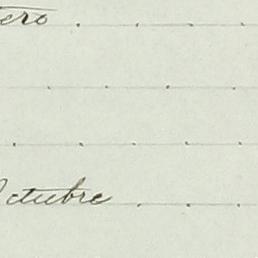 ero
Octubre